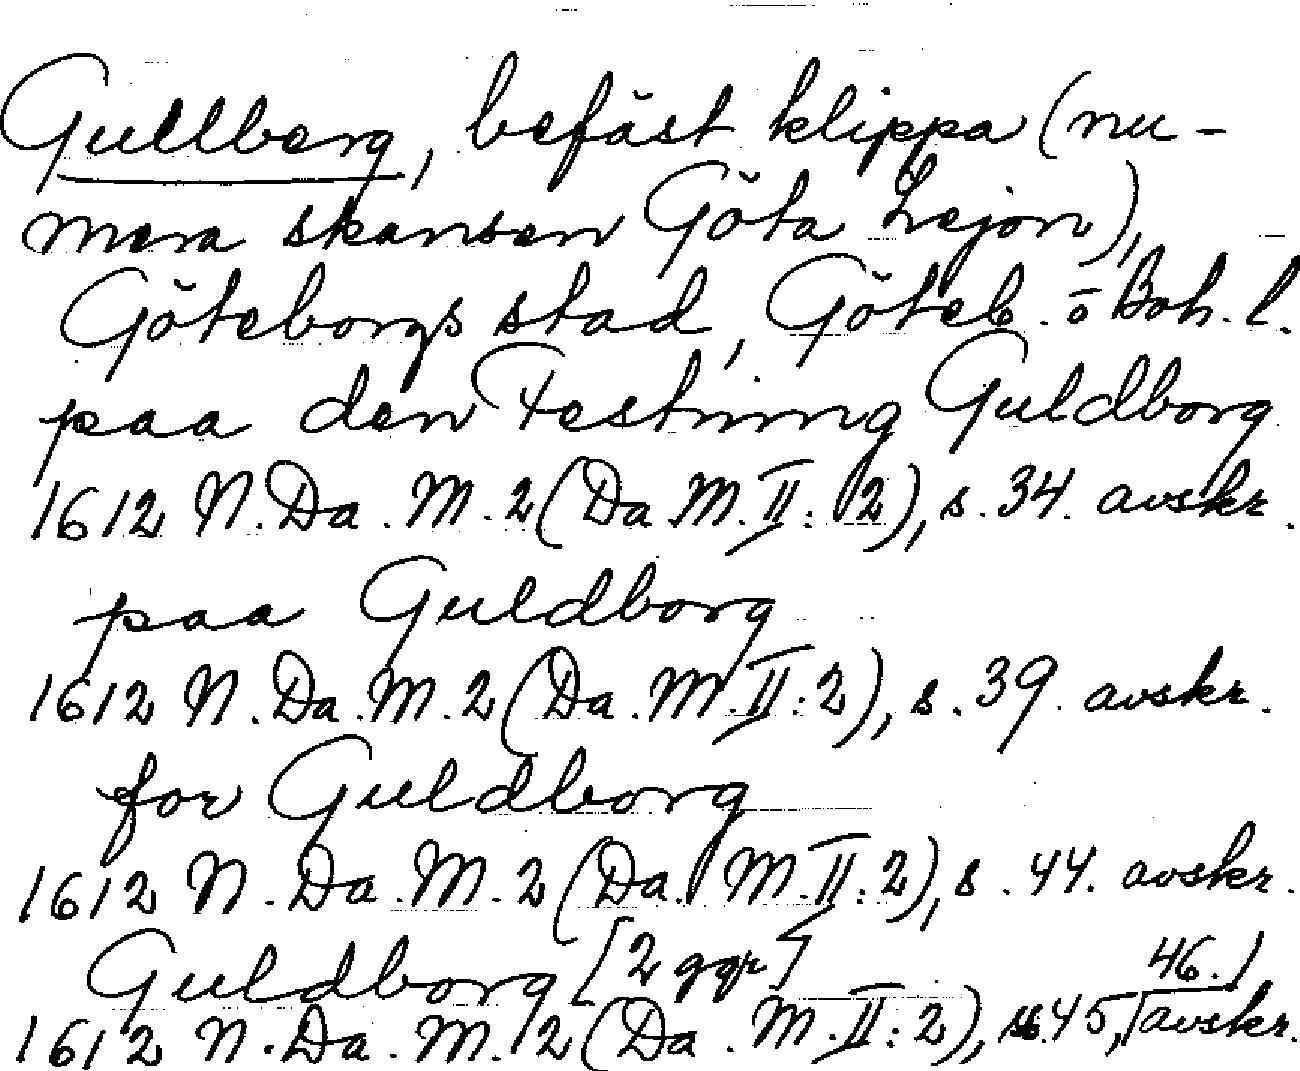 Gullberg, befäst klippa (nu-
mera skansen Göta Lejon),
Göteborgs stad, Göteb. o Boh. l.
paa den Festning Guldborg
1612 N. Da. M. 2 (Da M. II: 2), s. 34. avskr.
paa Guldborg
1612 N. Da. M. 2 (Da. M. II: 2), s. 39. avskr.
for Guldborg
1612 N. Da. M. 2 (Da. M. II: 2), s. 44. avskr.
Guldborg [2 ggr]
1612 N. Da. M. 2 (Da. M. II: 2), s. 45, 46. avskr.